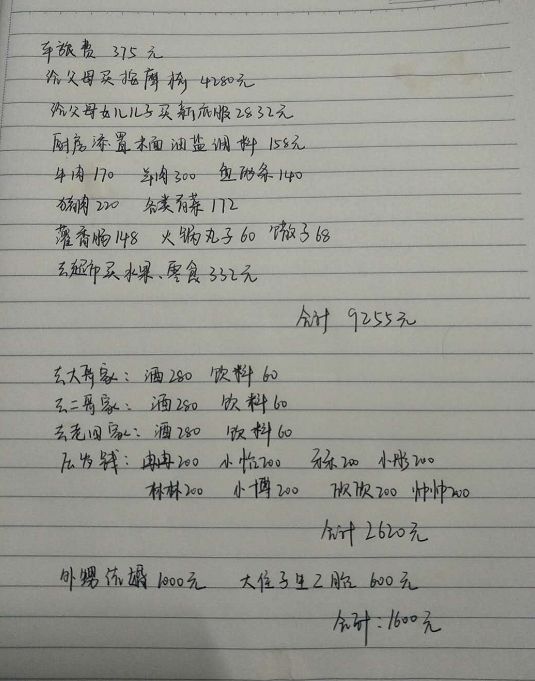 车旅费 375元
给父母买按摩椅 4280元
给父母女儿儿子买新衣服2832元
厨房添置米面油盐调料 158元
牛肉170 羊肉300 鱼 140
猪肉220 各类青菜172
灌香肠148 火锅丸子60 馓子68
去超市买水果、零食332元
合计 9255元
去大哥家：酒280 饮料60
去二哥家：酒280 饮料60
去老四家：酒280 饮料60
压岁钱：冉冉200 小怡200 200 小彤200
林林200 小博200 欣欣200 帅帅200
合计2620元
外甥结婚1000元 大侄子生二胎600元
合计：1600元